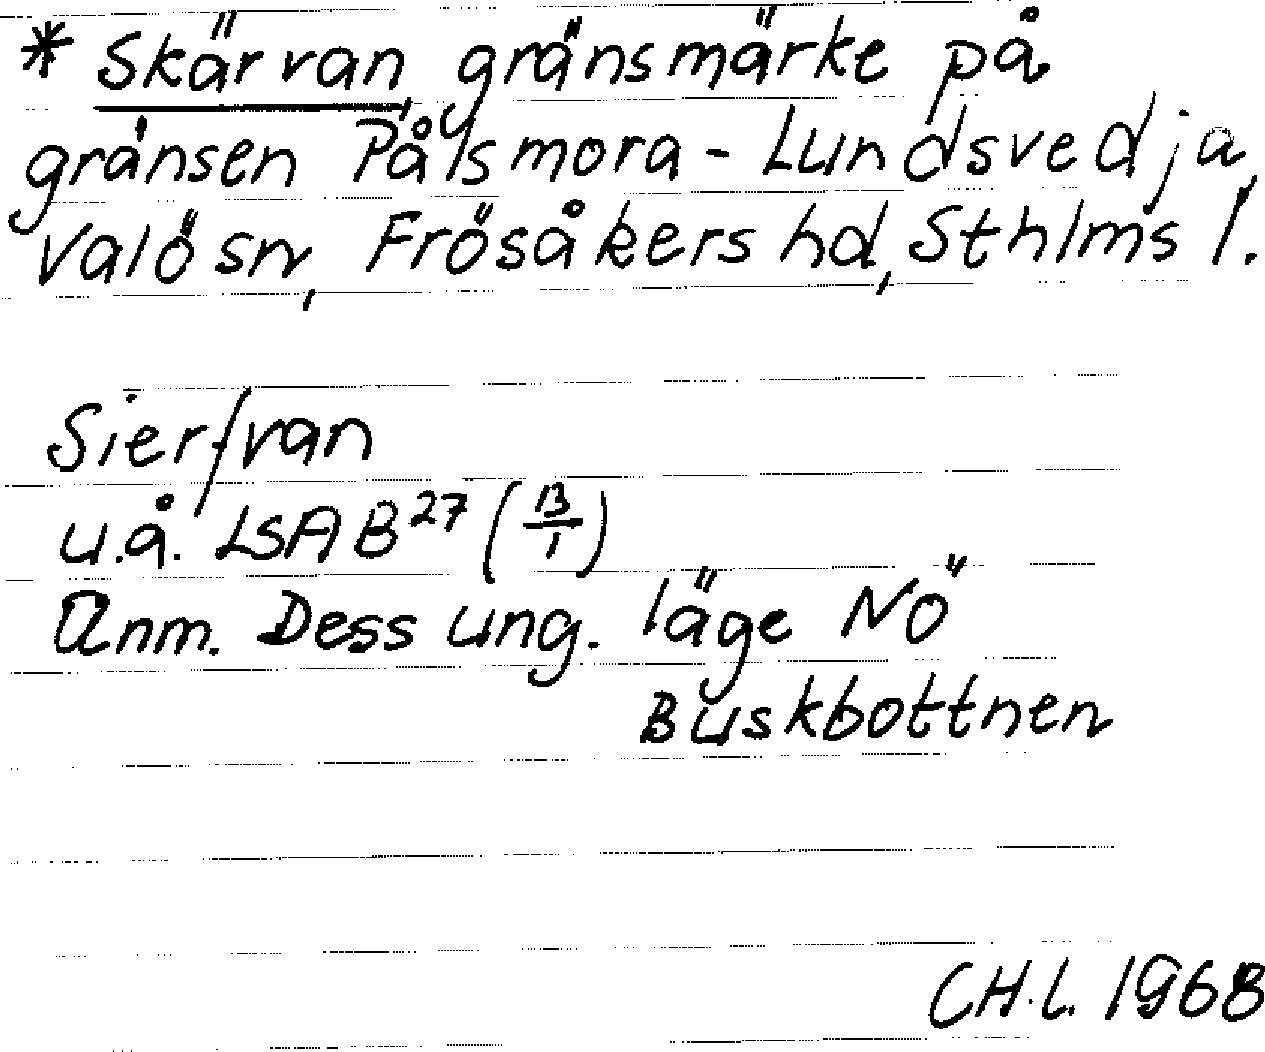 * Skärvan, gränsmärke på
gränsen Pålsmora - Lundsvedja,
Valö sn, Frösåkers hd, Sthlms l.
Sierfvan
u.å. LSA B²⁷ (B/1)
Anm. Dess ung. läge NÖ
Buskbottnen
CH.L. 1968